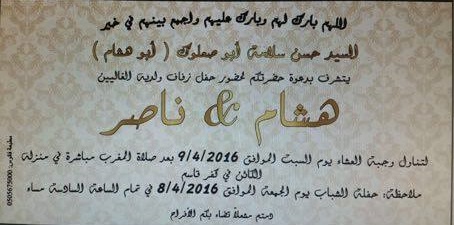 اللهم بارك لهم وبارك عليهم واجمع بينهم في خير
السيد حسن سلامة أبو صعلوك ( أبو هشام )
يتشرف بدعوة حضرتكم لحضور حفل زفاف ولديه الغاليين
هشام & ناصر
لتناول وجبة العشاء يوم السبت الموافق 9/4/2016 بعد صلاة المغرب مباشرة في منزله
الكائن في كفر قاسم
ملاحظة: حفلة الشباب يوم الجمعة الموافق 8/4/2016 في تمام الساعة السادسة مساء
ودمتم مشعلاً تضاء بكم الأفراح
0505675000